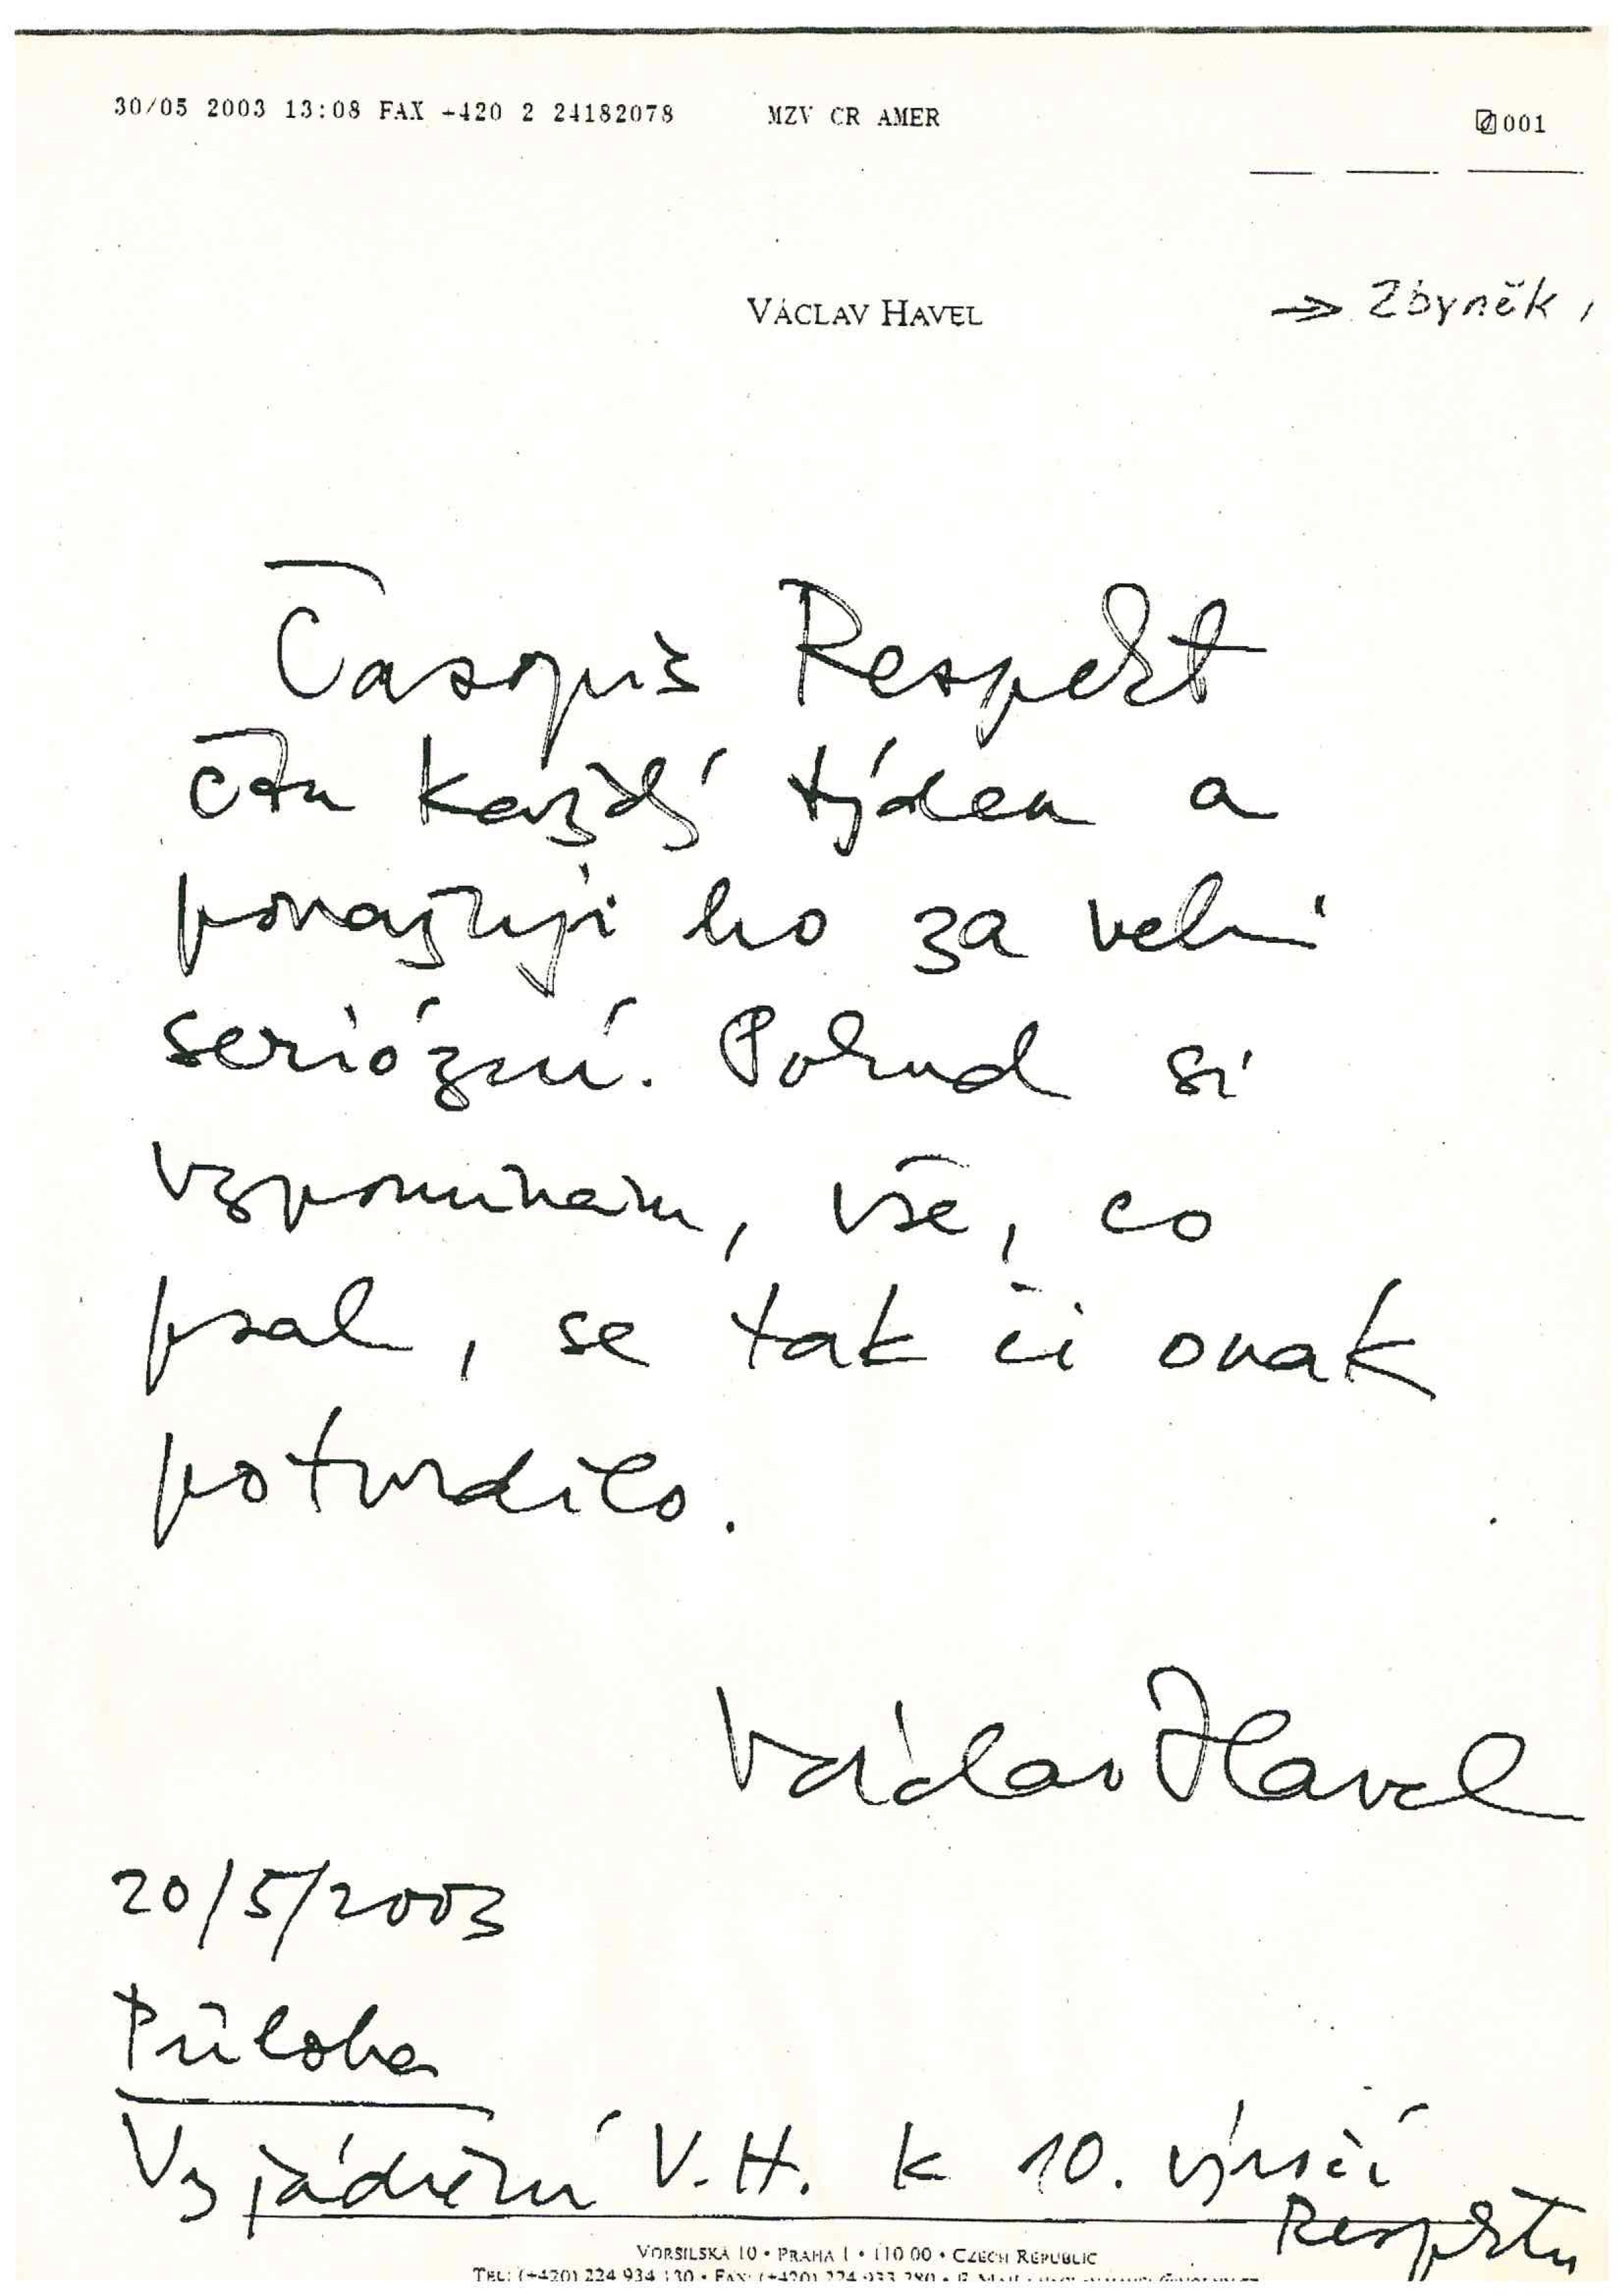 30/05 2003 13:08 FAX +420 2 24182078 MZV CR AMER 001
VÁCLAV HAVEL → Zbyněk
Časopis Respekt
čtu každý týden a
považuji ho za velmi
seriózní. Pokud si
vzpomínám, vše, co
psal, se tak či onak
potvrdilo.
Václav Havel
20/5/2003
Příloha
Vyjádření V.H. k 10. výročí
Respektu
VORŠILSKÁ 10 • PRAHA 1 • 110 00 • CZECH REPUBLIC
TEL: (+420) 224 934 130 • FAX: (+420) 224 933 780 •